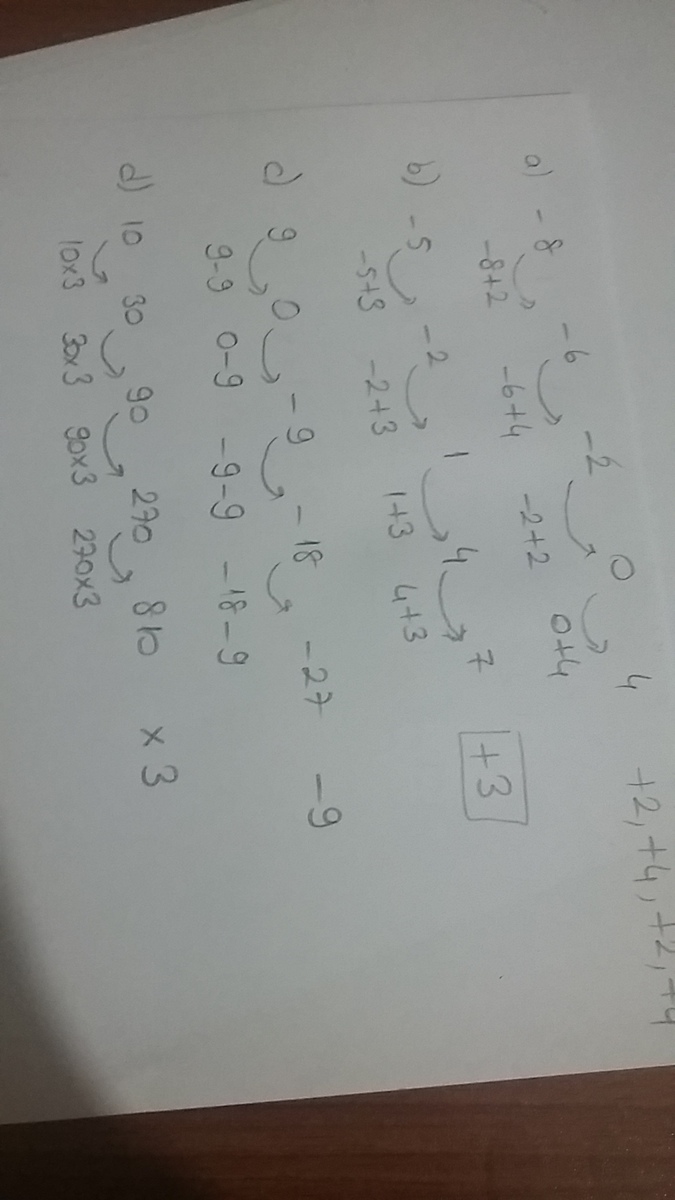 a) -8 -6 -2 0 4 +2, +4, +2, +4
-8+2 -6+4 -2+2 0+4
b) -5 -2 1 4 7 +3
-5+3 -2+3 1+3 4+3
c) 9 0 -9 -18 -27 -9
9-9 0-9 -9-9 -18-9
d) 10 30 90 270 810 x 3
10x3 30x3 90x3 270x3